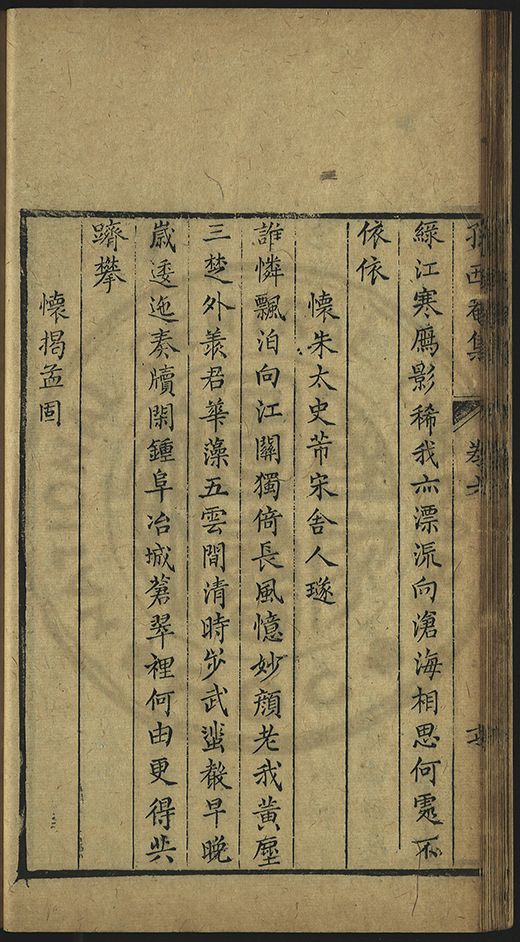 孫西菴集 卷六
綠江寒鴈影稀我亦漂流向滄海相思何處不
依依
懷朱太史芾宋舍人璲
誰憐飄泊向江關獨倚長風憶妙顔老我黃塵
三楚外羨君華藻五雲間清時步武蜚聲早晚
歲逶迤奏牘閑鍾阜冶城蒼翠裡何由更得共
躋攀
懷揭孟固